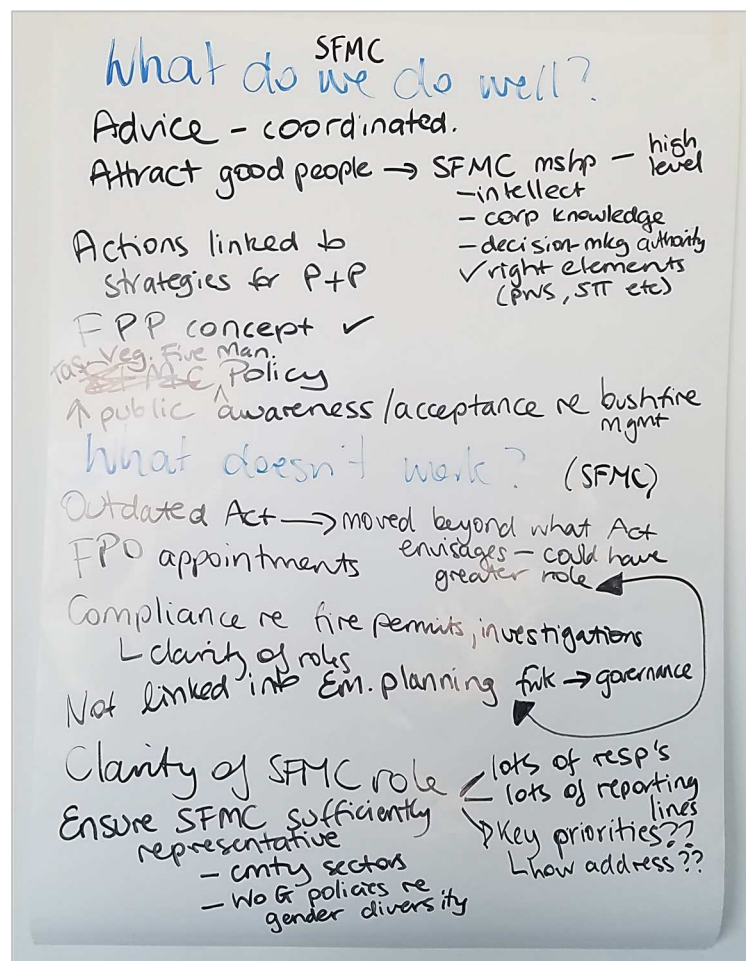 SFMC
What do we do well?
Advice - coordinated.
Attract good people → SFMC mshp - high level
- intellect
- corp knowledge
- decision-mkg authority
✓ right elements
(PWS, STT etc)
Actions linked to
strategies for P+P
FPP concept ✓
Tas. Veg. Fire Man.
Policy
↑ public ^ awareness/acceptance re bushfire
mgmt
What doesn't work? (SFMC)
Outdated Act → moved beyond what Act
envisages - could have
greater role
FPO appointments
Compliance re fire permits, investigations
└ clarity of roles
Not linked into Em. planning fwk → governance
Clarity of SFMC role
lots of resp's
lots of reporting
lines
Key priorities??
└ how address??
Ensure SFMC sufficiently
representative
- cmty sectors
- WoG policies re
gender diversity